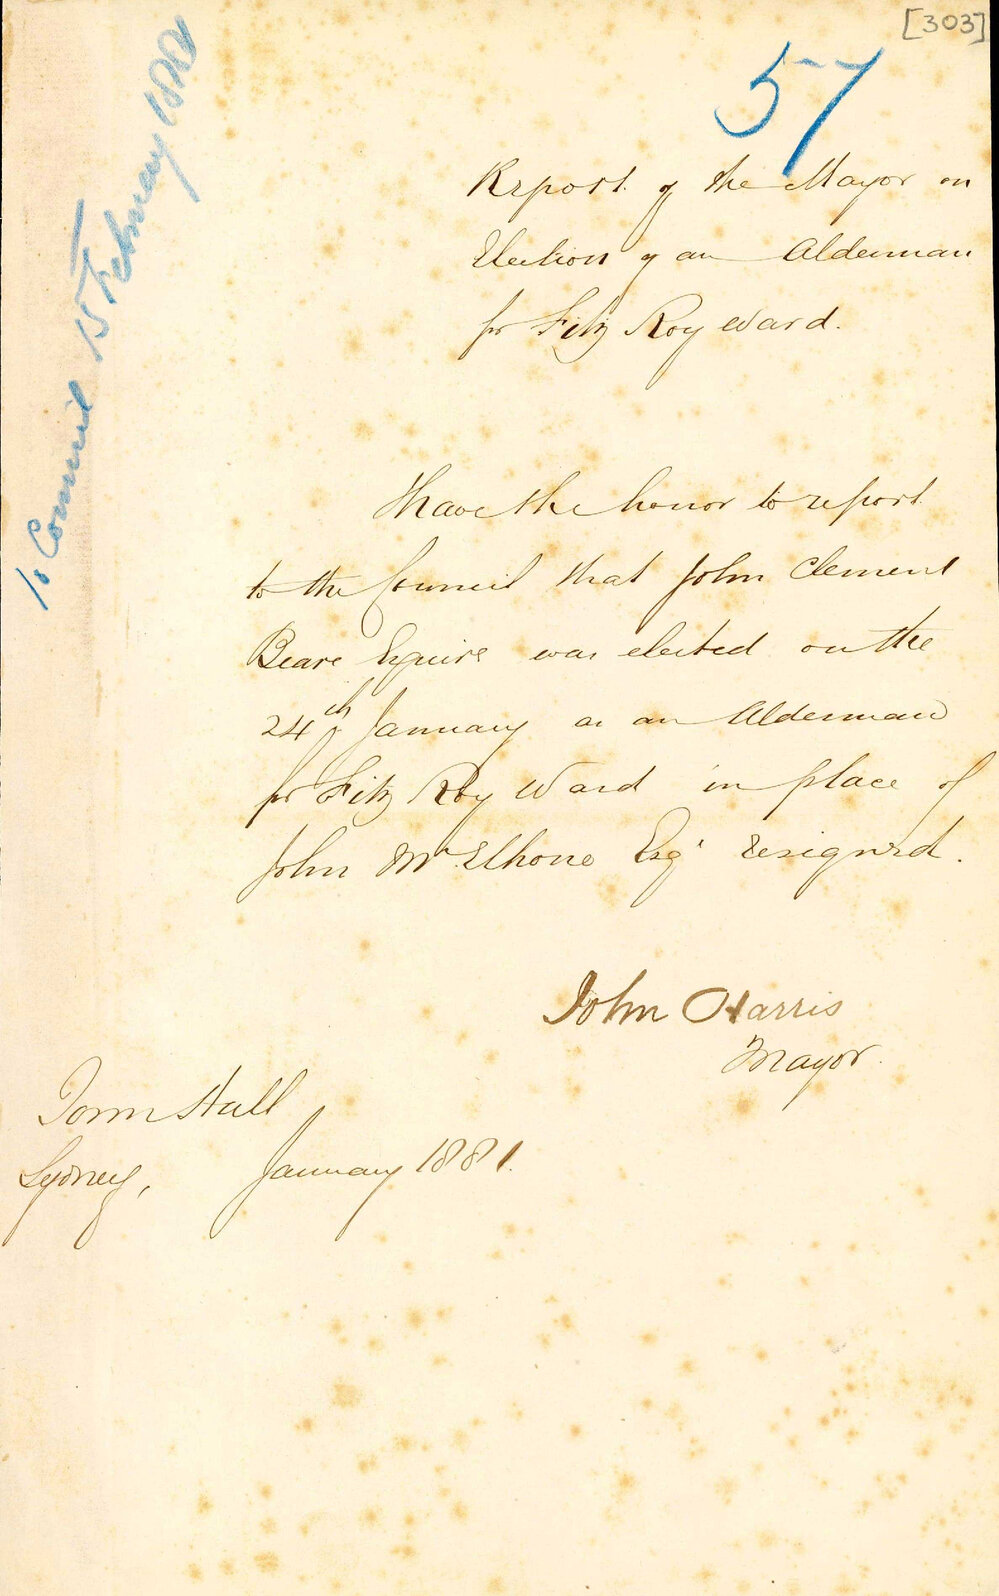 [303]
57
To Council 15 February 1882
Report of the Mayor on
Election of an Alderman
for Fitz Roy Ward.
I have the honor to report
to the Council that John Clement
Beare Esquire was elected on the
24th of January as an Alderman
for Fitz Roy Ward in place of
John McElhone Esqr resigned.
John Harris
Mayor.
Town Hall
Sydney, January 1881.